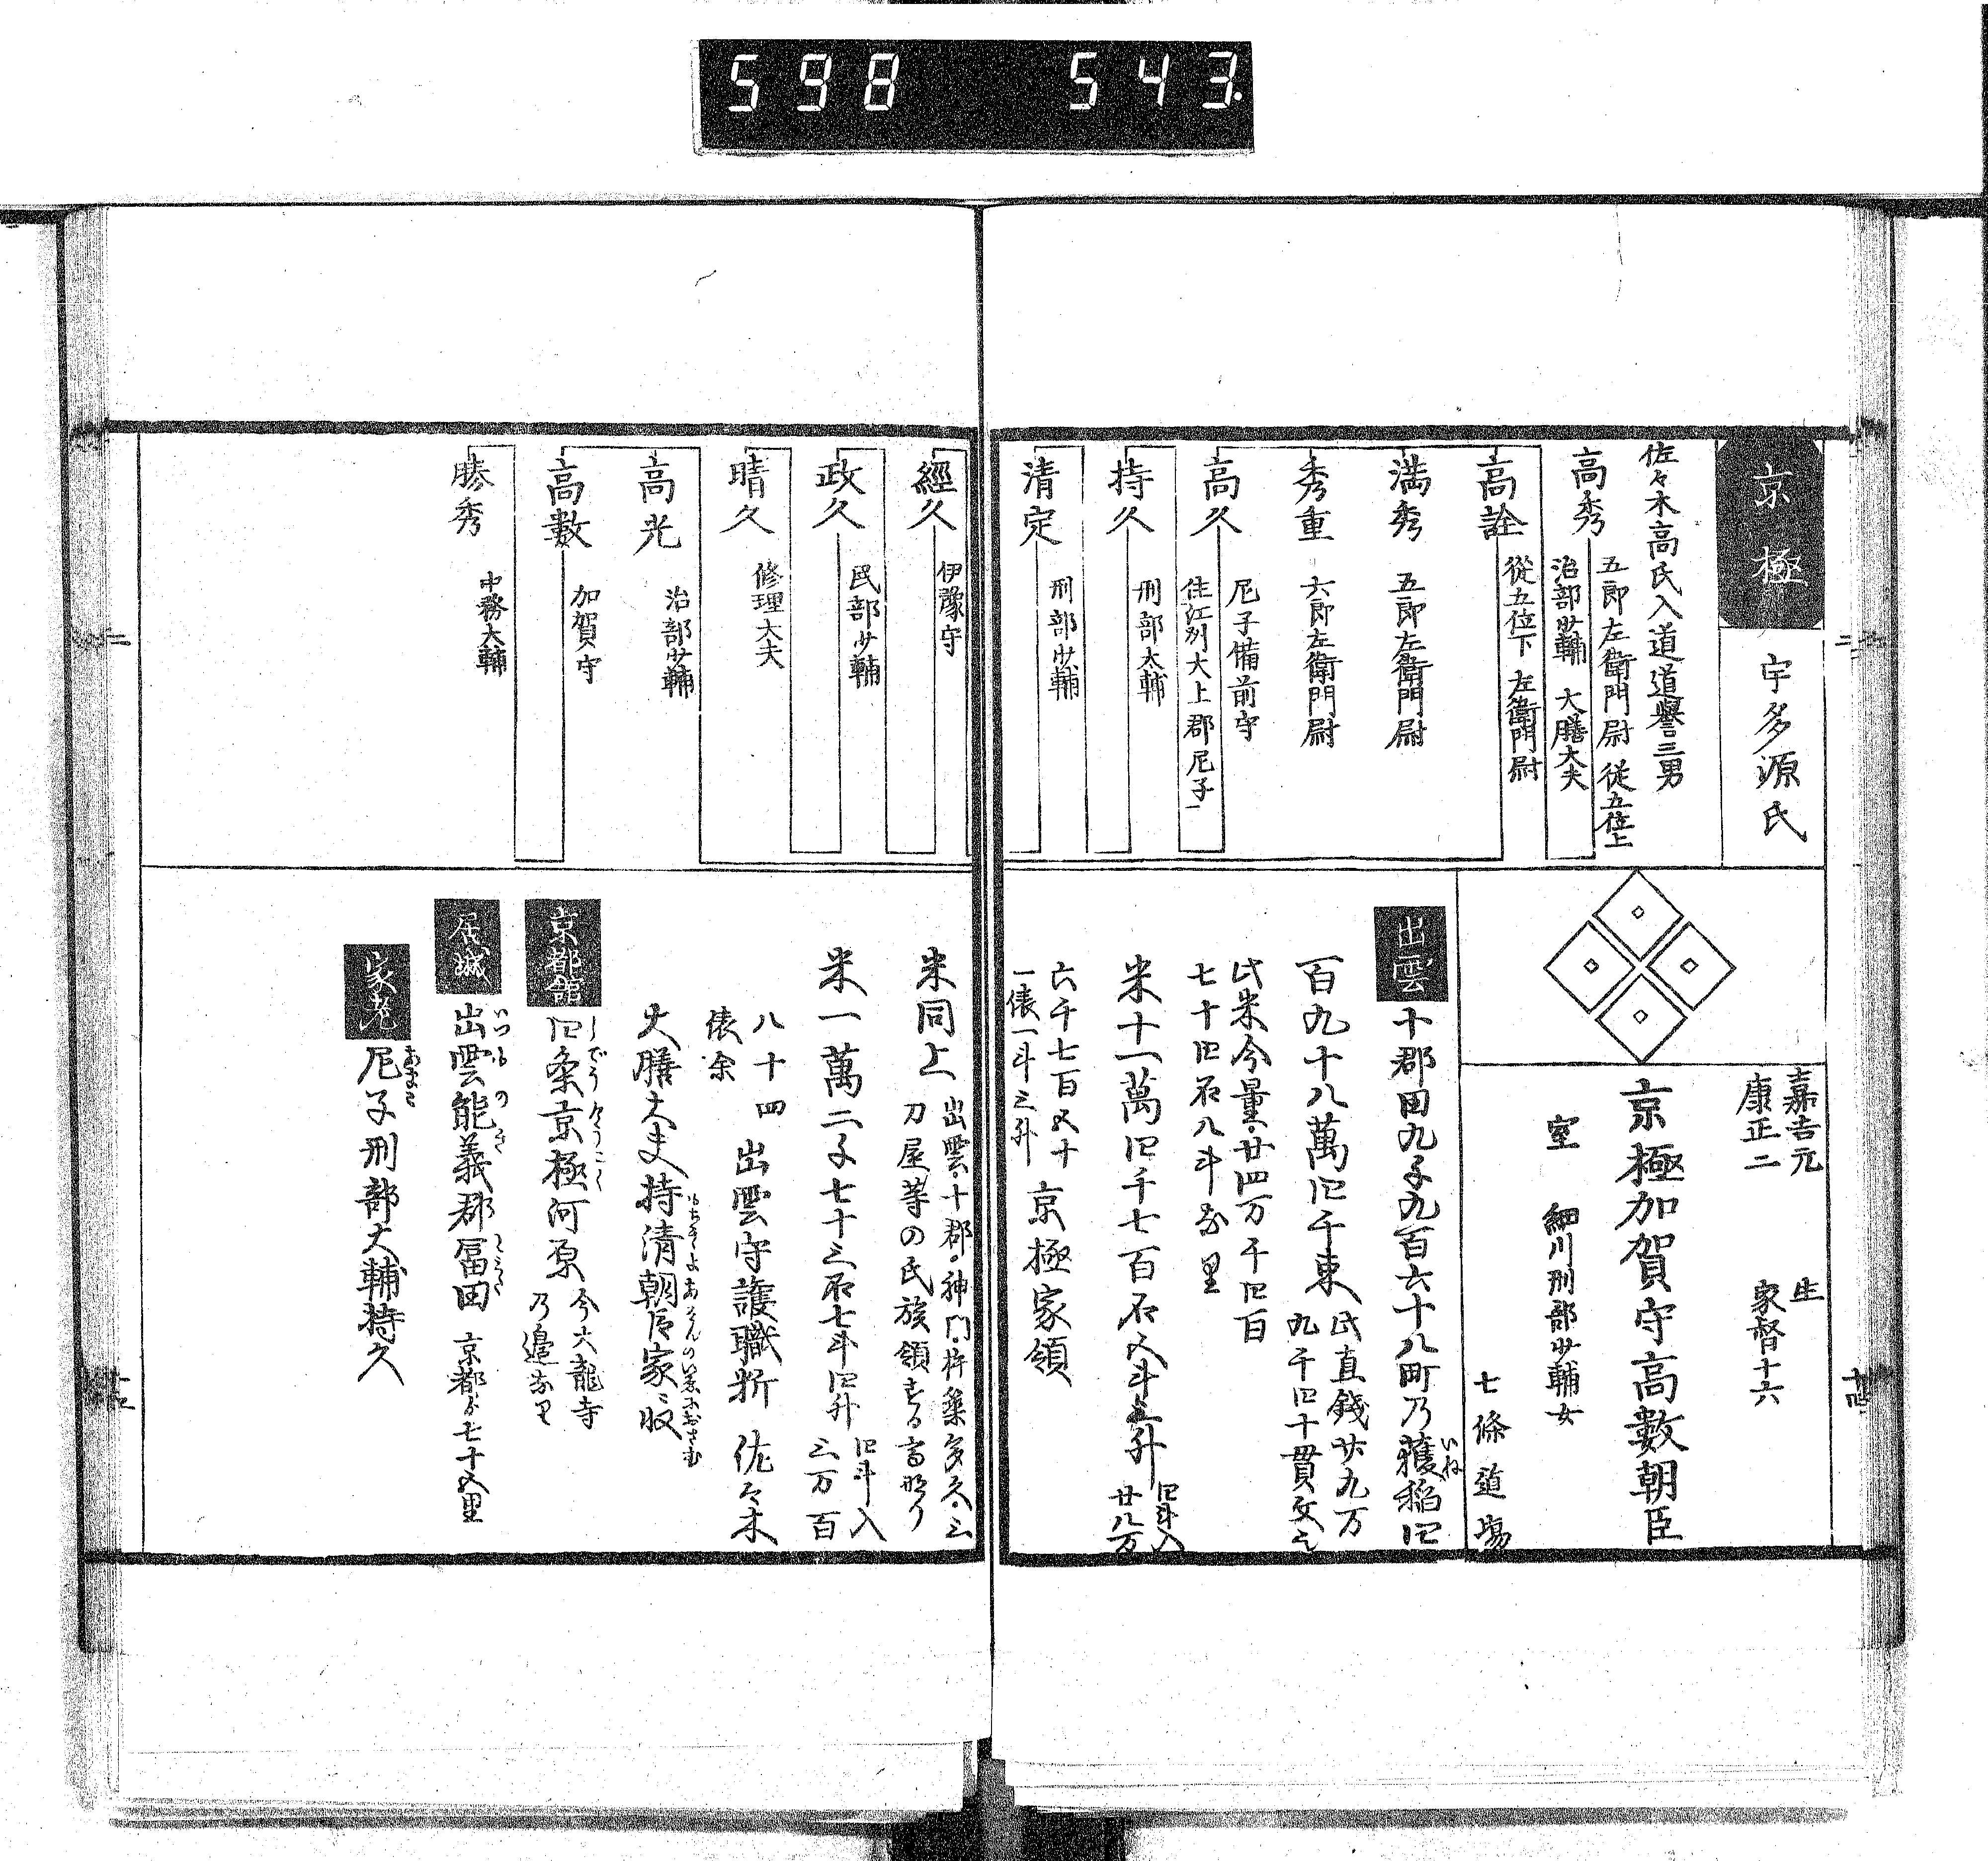 598 543.
京極
宇多源氏
佐々木高氏入道道譽三男
高秀
五郎左衛門尉 從五位上
治部少輔 大膳大夫
高詮
從五位下 左衛門尉
満秀 五郎左衛門尉
秀重 六郎左衛門尉
高久
尼子備前守
住江州犬上郡尼子
持久 刑部大輔
清定 刑部少輔
嘉吉元 生
康正二 家督十六
京極加賀守高數朝臣
室 細川刑部少輔女
七條道場
出雲
十郡田九千九百六十八町乃穫稲四
いね
百九十八萬四千束
此直錢廿九万
九千四十貫文之
此米今量廿四万千四百
七十四石八斗
米十一萬四千七百石五斗五升
四斗入
廿八万
六千七百五十
一俵一斗三升
京極家領
經久 伊豫守
政久 民部少輔
晴久 修理大夫
高光 治部少輔
高數 加賀守
勝秀 中務大輔
米同上
出雲十郡神門杵築多久三
刀屋等の氏族領する高なり
米一萬二千七十三石七斗四升
四斗入
三万百
八十四
俵余
出雲守護職料 佐々木
大膳大夫持清朝臣家收
京都館
四条京極河原
今大龍寺
乃邉なり
居城
出雲能義郡冨田
京都ゟ七十五里
家老
尼子刑部大輔持久